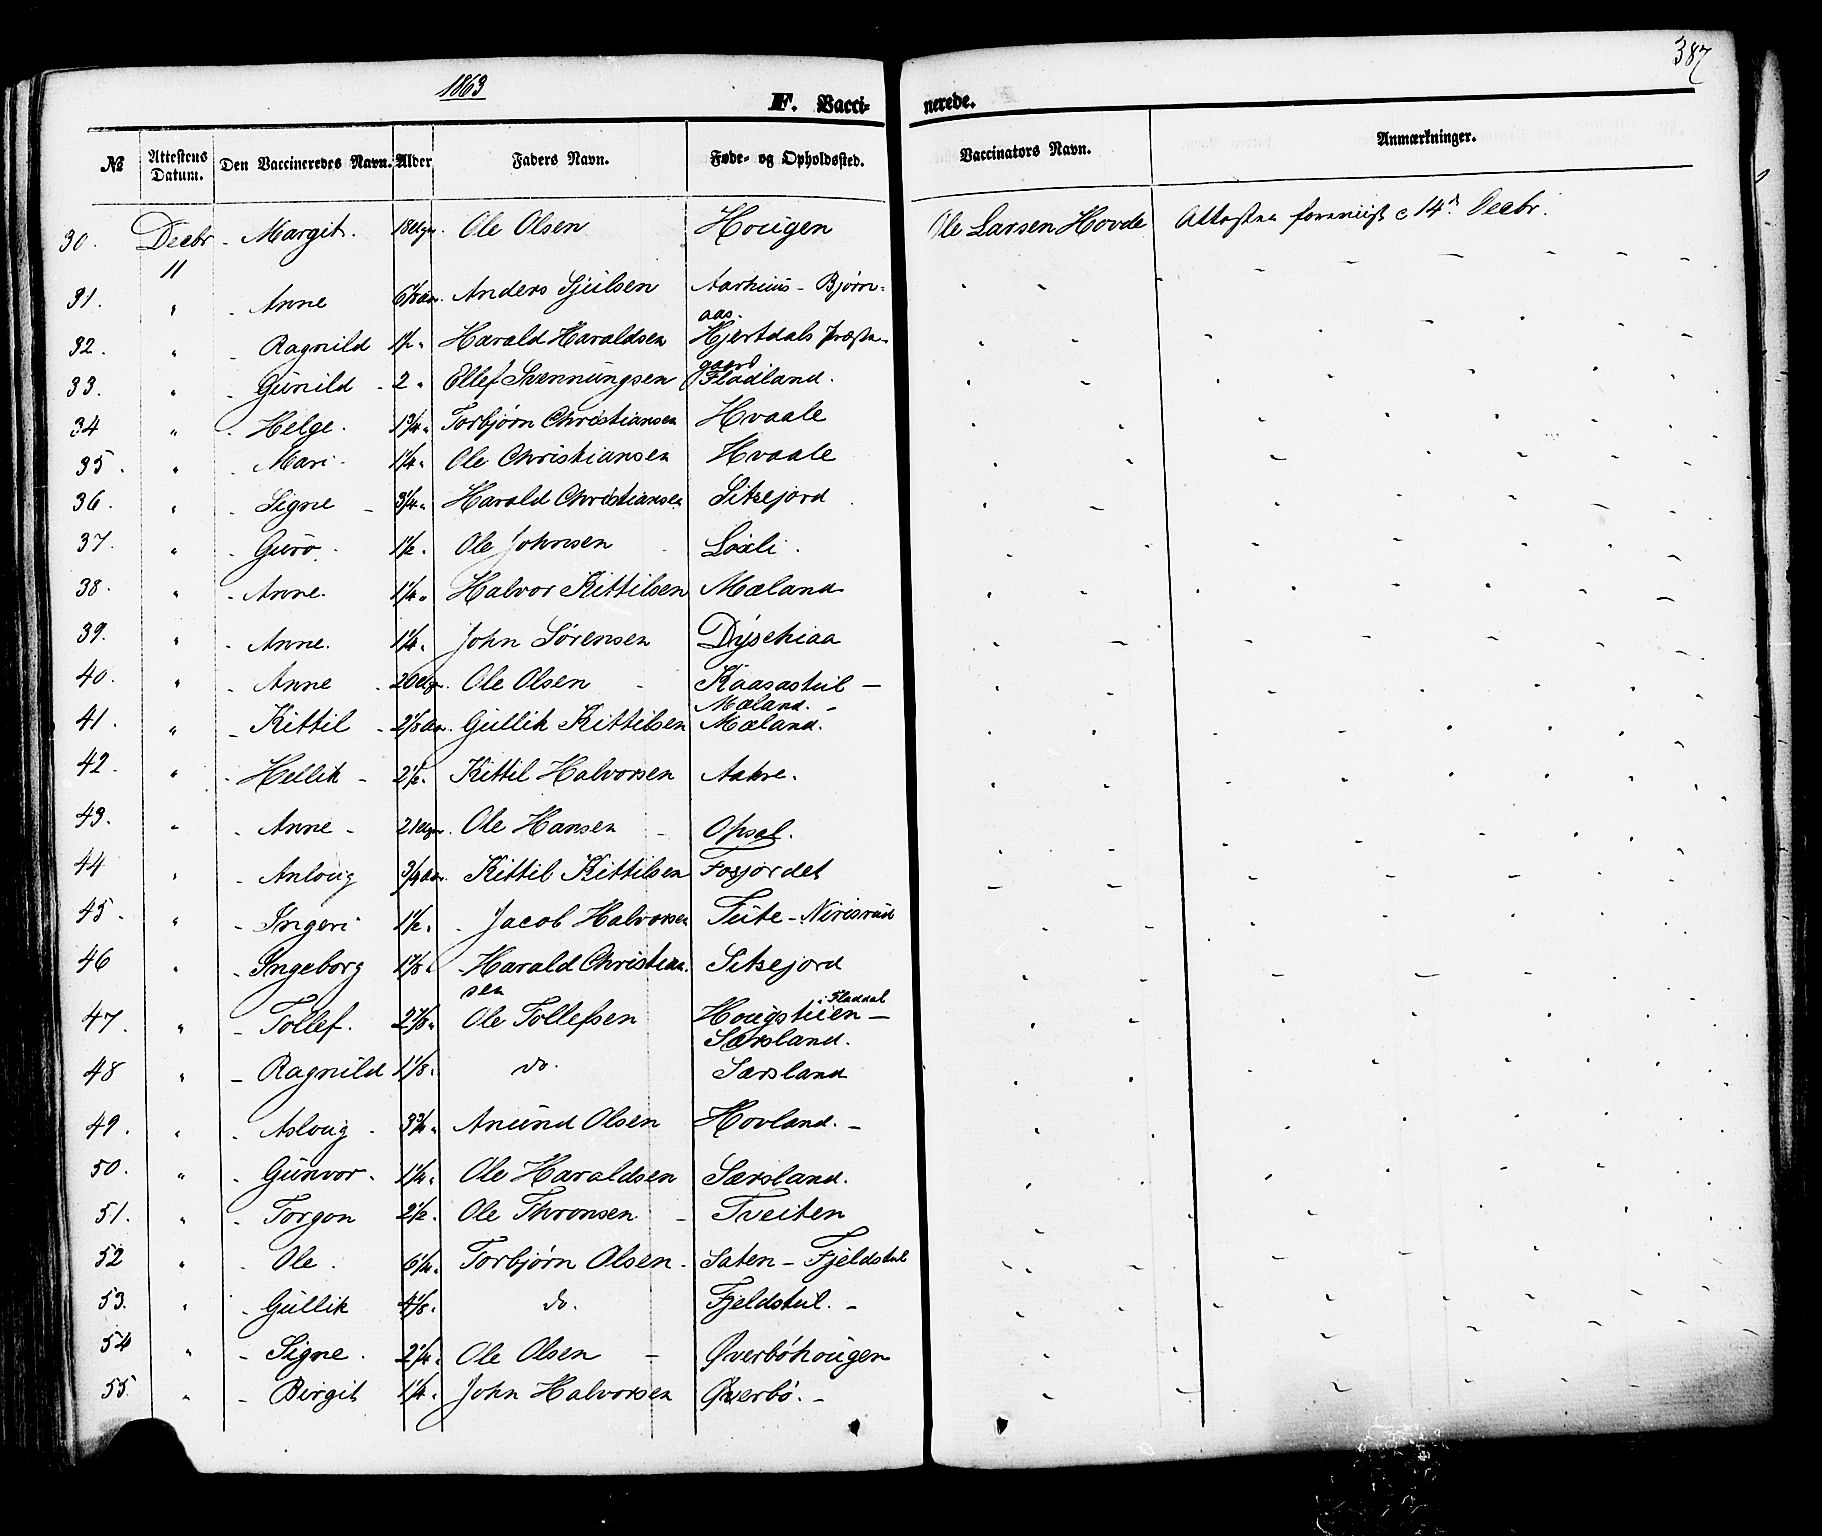 1863
387
F. Vaccinerede.
№ | Attestens Datum. | Den Vaccineredes Navn. | Alder | Faders Navn. | Føde- og Opholdssted. | Vaccinators Navn. | Anmærkninger.
30. Decbr 11 - Margit. 18 Ole Olsen Hougen Ole Larsen Hovde c 14d Decbr.
31. " - Anne 6 Anders Sjulsen Aarhuus - Bjørn-
aas.
32. " - Ragnild 1½ " Harald Haraldsen Hjertdals Præste-
gaard
33. " - Gunild - 2 " Ellef Svennungsen Fladland.
34 " - Helge. 1¾ " Torbjørn Christiansen Hvaale
35. " - Mari - 1¼ " Ole Christiansen Hvaale
36. " - Signe - 3¼ " Harald Christiansen Sitsejord
37. " - Guro. 1½ " Ole Johnsen Løxli.
38. " - Anne. 1¼ " Halvor Kittilsen Mæland
39. " - Anne. 1¼ " John Sørensen Dyschiaa
40. " - Anne - 20 Ole Olsen - Kaasastul -
Mæland. -
41. " - Kittil - 2⅛ Aar. Gullik Kittilsen Mæland.
42. " - Hellik - 2½ " Kittil Halvorsen Aakre.
43. " - Anne - 21 Ole Hansen - Opsal.
44 " - Anloug ¾ Aar. Kittil Kittilsen Fosjordet
45. " - Ingeri 1½ " Jacob Halvorsen Tute - Nirisrud
46 " - Ingeborg 1⅞ " Harald Christian-
sen Sitsejord
47. " - Tollef. 2⅞ " Ole Tollefsen Hougstuen - i Fladdal
Særsland.
48 " - Ragnild 1⅛ " do. Særsland
49. " - Asloug - 3¾ " Anund Olsen Hovland. -
50. " - Gunvor. 1¼ " Ole Haraldsen Særsland.
51. " - Torgon 2½ " Ole Thronsen - Tveiten
52 " - Ole. 6¼ " Torbjørn Olsen - Saten - Fjeldstul
53. " - Gullik 4⅛ " do. Fjeldstul. -
54 " - Signe. 2¼ " Ole Olsen - Øverbøhougen
55. " - Birgit 1¼ " John Halvorsen Øverbø. -